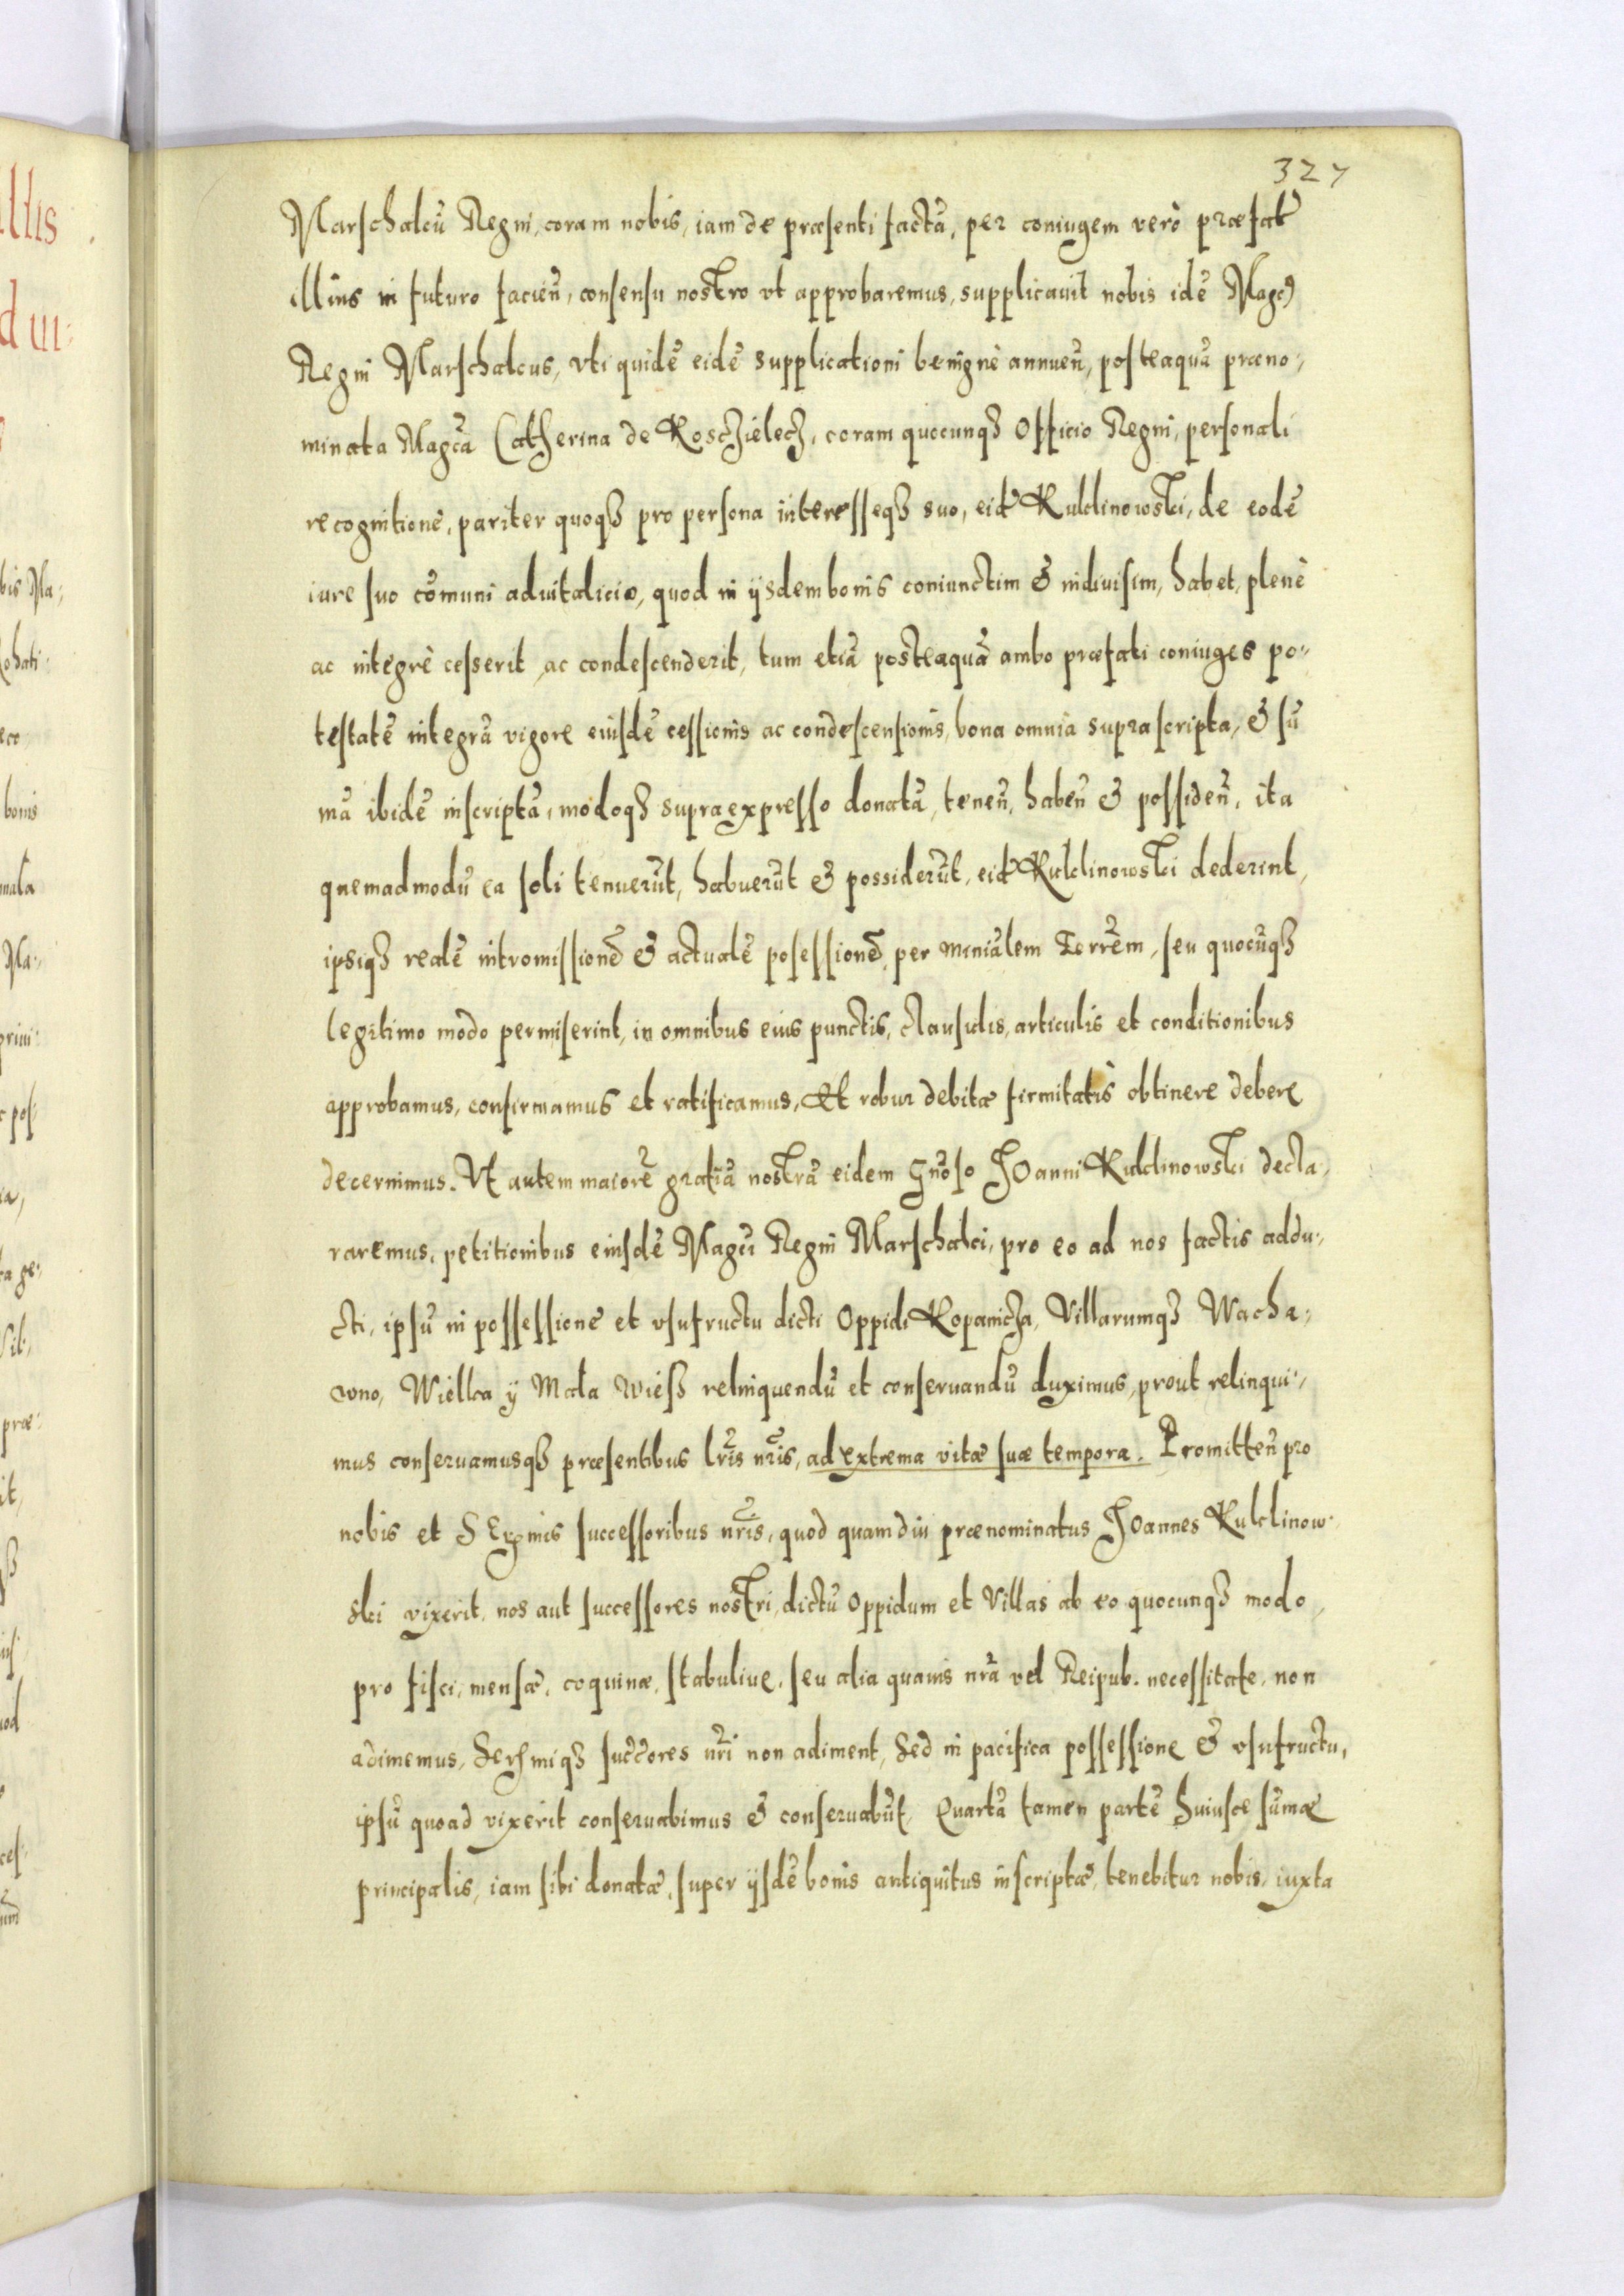 327
Marschalcū Regni, coram nobis, iam de præsenti factā, per coniugem verò præfat
illius in futuro facien̄, consensu nostro vt approbaremus, supplicauit nobis idē Magcꝰ
Regni Marschalcus, vti quidē eidē supplicationi benignè annuen̄, posteaquā præno-
minata Magcā Catherina de Kosczielecz, coram quocunqꝫ Officio Regni, personali
recognitione, pariter quoqꝫ pro persona interesseqꝫ suo, eid Kuklinowski, de eodē
iure suo cōmuni aduitalicio, quod in ijsdem bonis coniunctim & indiuisim, habet, plenè
ac integrè cesserit ac condescenderit, tum etiā posteaquā ambo præfati coniuges po-
testatē integrā vigore eiusdē cessionis ac condescensionis, bona omnia suprascripta, & sū
mā ibidē inscriptā, modoqꝫ supraexpresso donatā, tenen̄, haben̄ & possiden̄, ita
quemadmodū ea soli tenuerūt, habuerūt & possiderūt, eid Kuklinowski dederint,
ipsiqꝫ realē intromissionē & actualē posessionē, per miniālem Terrēm, seu quocūqꝫ
legitimo modo permiserint, in omnibus eius punctis, clausulis, articulis et conditionibus
approbamus, confirmamus et ratificamus, Et robur debitæ firmitatis obtinere debere
decernimus. Vt autem maiorē gratiā nostrā eidem Gnōso Joanni Kuklinowski decla-
raremus, petitionibus eiusdē Magci Regni Marschalci, pro eo ad nos factis addu-
cti, ipsū in possessione et vsufructu dicti Oppidi Kopanicza, Villarumqꝫ Wacha-
wno, Wielka ÿ Mala wieß relinquendū et conseruandū duximus, prout relinqui-
mus conseruamusqꝫ præsentibus lr̄is nr̄is, ad extrema vitæ suæ tempora. Promitten̄ pro
nobis et Serenmis successoribus nr̄is, quod quamdiu prænominatus Joannes Kuklinow-
ski vixerit, nos aut successores nostri, dictū Oppidum et Villas ab eo quocunqꝫ modo,
pro fisci, mensæ, coquinæ, stabuliue, seu alia quauis nr̄a vel Reipub. necessitate, non
adimemus, Serꝫmiqꝫ succ̄ores nr̄i non adiment, Sed in pacifica possessione & vsufructu,
ipsū quoad vixerit conseruabimus & conseruabūt. Quartā tamen partē huiusce sūmæ
principalis, iam sibi donatæ, super ijsdē bonis antiquitus inscriptæ, tenebitur nobis, iuxta